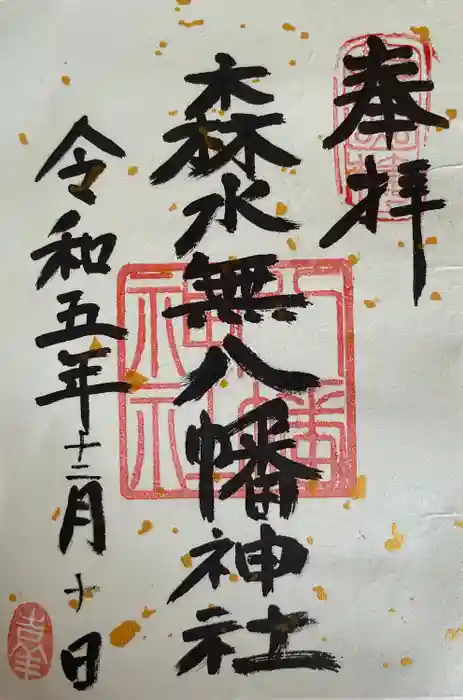 奉拝
森水無八幡神社
令和五年十二月十日
八幡神社